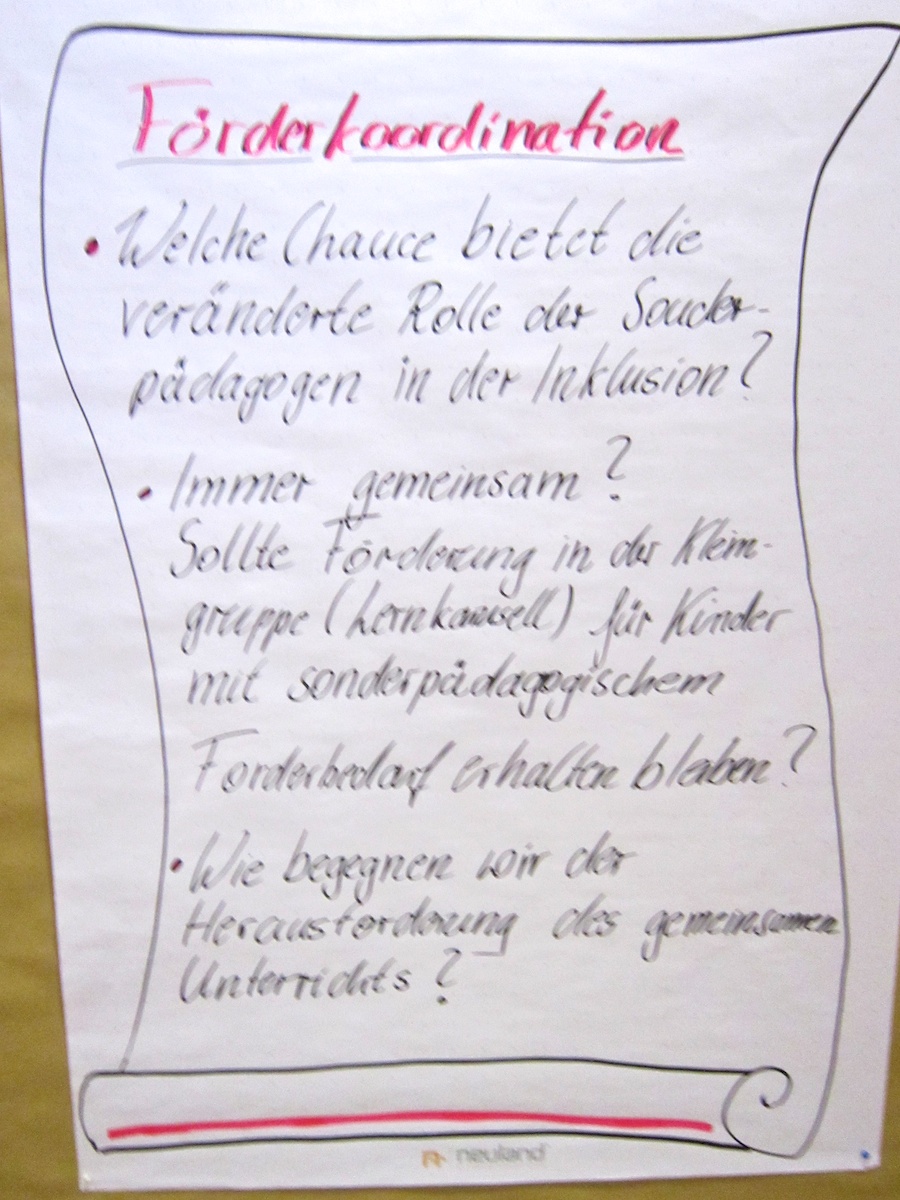 Förderkoordination
• Welche Chance bietet die
veränderte Rolle der Sonder-
pädagogen in der Inklusion?
• Immer gemeinsam?
Sollte Förderung in der Klein-
gruppe (Lernkarussell) für Kinder
mit sonderpädagogischem
Förderbedarf erhalten bleiben?
• Wie begegnen wir der
Herausforderung des gemeinsamen
Unterrichts?
neuland